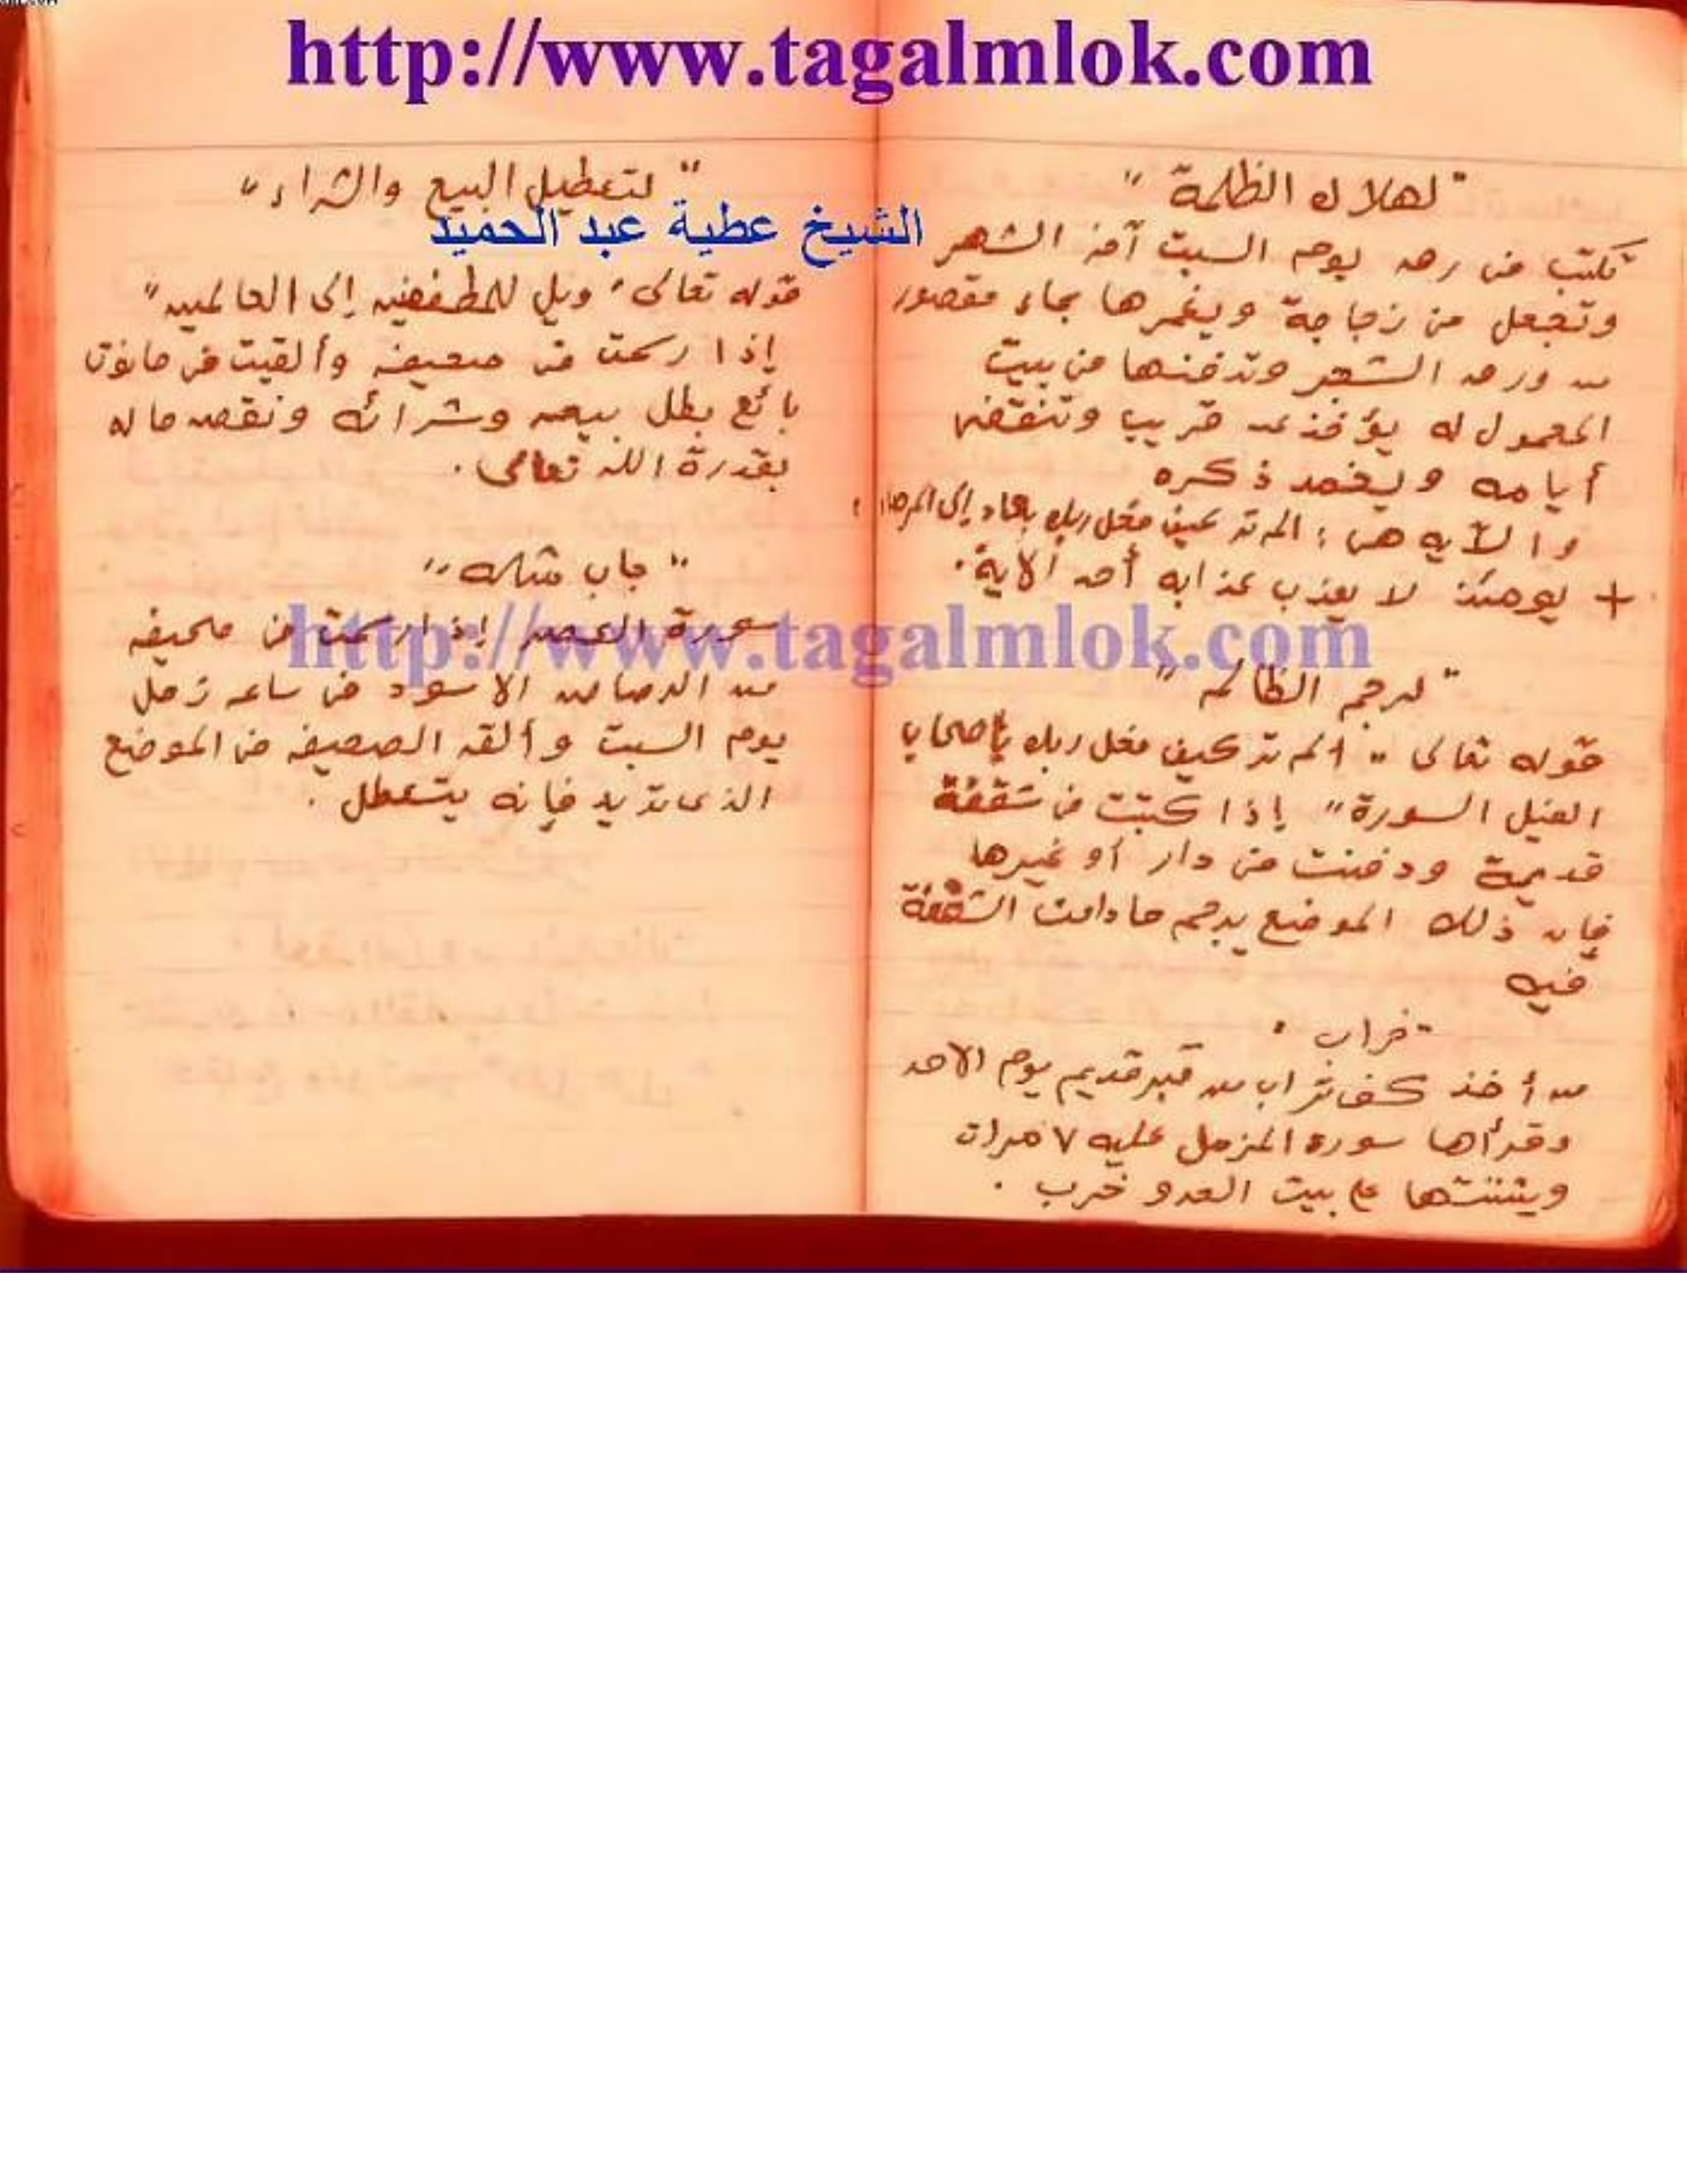 http://www.tagalmlok.com
الشيخ عطية عبد الحميد
" لهلاك الظلمة "
تكتب فى رق يوم السبت آخر الشهر
وتجعل فى زجاجة ويغمرها بماء مقصور
من ورق الشجر وتدفنها فى بيت
المعمول له يؤخذ عن قريب وتنقضى
أيامه ويخمد ذكره
والآيه هى : الم تر كيف فعل ربك بعاد إلى المرصاد :
+ يومئذ لا يعذب عذابه أحد الآية .
http://www.tagalmlok.com
" لرجم الظالم "
قوله تعالى " الم تر كيف فعل ربك بأصحاب
الفيل السورة " إذا كتبت فى شقفة
قديمة ودفنت فى دار أو غيرها
فإن ذلك الموضع يرجم مادامت الشقفة
فيه
" خراب "
من أخذ كف تراب من قبر قديم يوم الاحد
وقرأها سورة المزمل عليه ٧ مرات
على بيت العدو خرب .
" لتعطيل البيع والشراء "
قوله تعالى " ويل للمطففين إلى العالمين "
إذا رسمت فى صحيفه وألقيت فى حانوت
بائع بطل بيعه وشرائه ونقص ماله
بقدرة الله تعالى .
" جاب "
سورة العصر إذا رسمت فى صحيفه
من الرصاص الاسود فى ساعه زحل
يوم السبت وألقه الصحيفه فى الموضع
الذى تريد فإنه يتعطل .